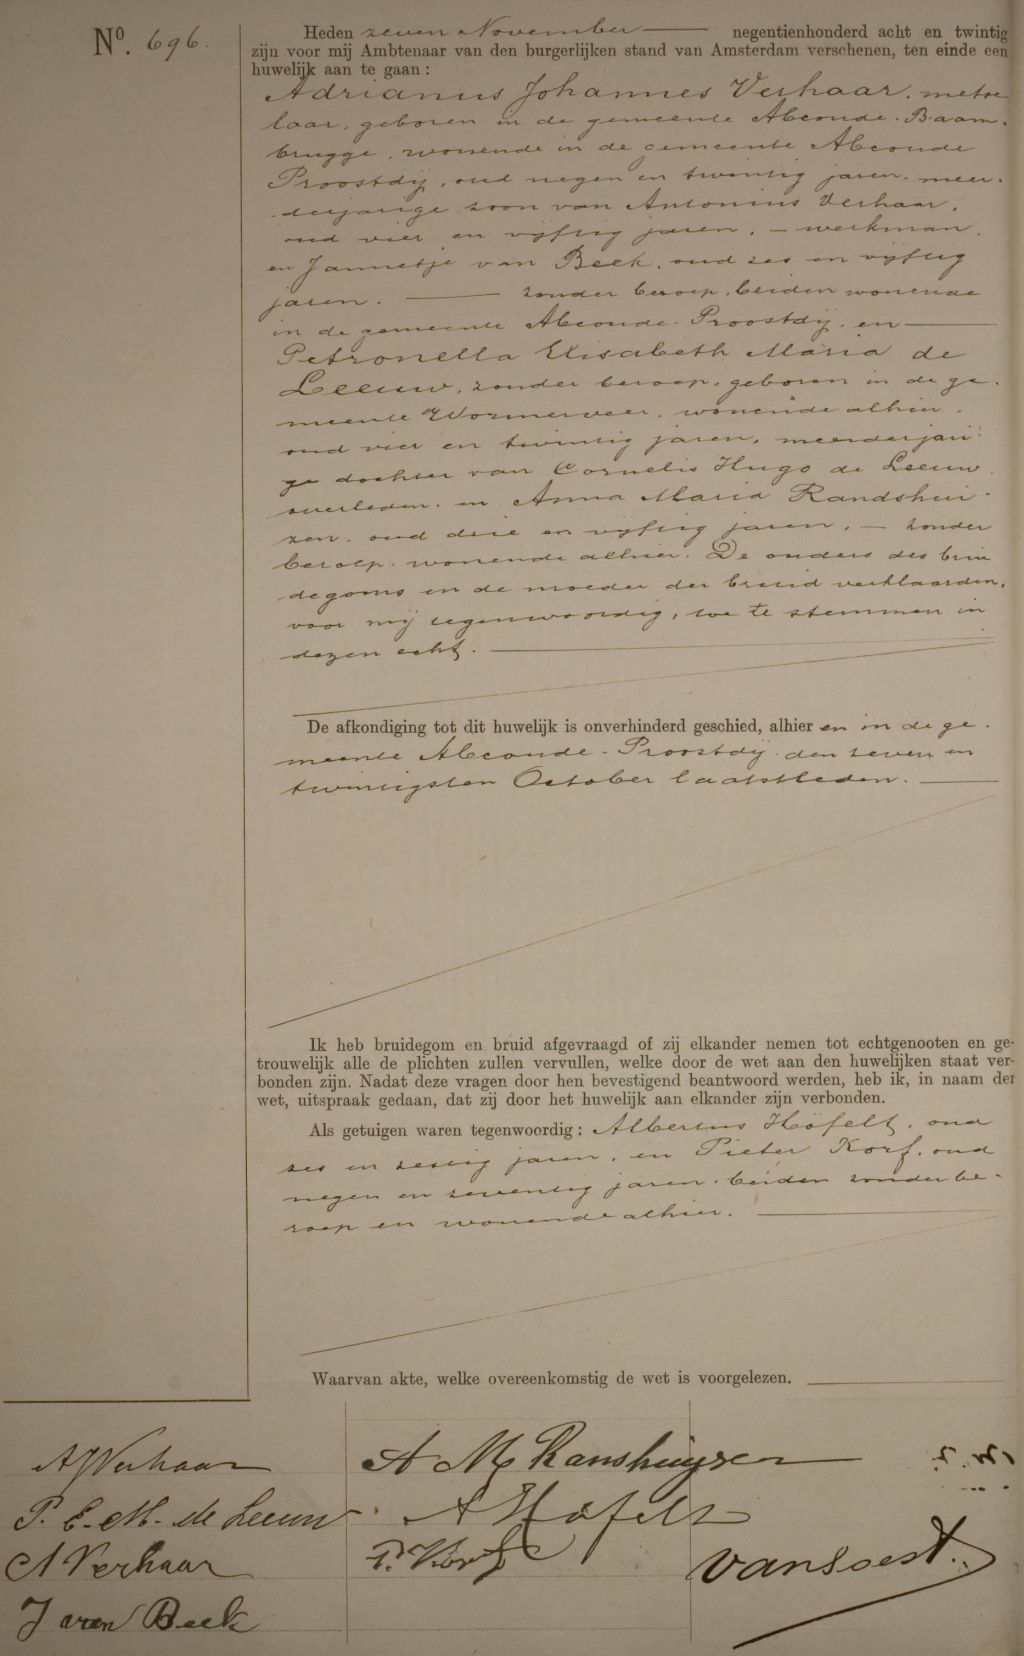 No. 696.
Heden zeven November negentienhonderd acht en twintig
zijn voor mij Ambtenaar van den burgerlijken stand van Amsterdam verschenen, ten einde een
huwelijk aan te gaan:
Adrianus Johannes Verhaar, metse
laar, geboren in de gemeente Abcoude-Baam-
brugge, wonende in de gemeente Abcoude
Proostdij, oud negen en twintig jaren, meer-
derjarige zoon van Antonius Verhaar,
oud vier en vijftig jaren, — werkman,
en Jannetje van Beek, oud zes en vijftig
jaren. — zonder beroep, beiden wonende
in de gemeente Abcoude-Proostdij, en —
Petronella Elisabeth Maria de
Leeuw, zonder beroep, geboren in de ge-
meente Wormerveer, wonende alhier,
oud vier en twintig jaren, meerderjari-
ge dochter van Cornelis Hugo de Leeuw,
overleden, en Anna Maria Randshui-
zen, oud drie en vijftig jaren, — zonder
beroep, wonende alhier. De ouders des brui
degoms en de moeder der bruid verklaarden,
voor mij tegenwoordig, toe te stemmen in
dezen echt. —
De afkondiging tot dit huwelijk is onverhinderd geschied, alhier en in de ge-
meente Abcoude-Proostdij den zeven en
twintigsten October laatstleden. —
Ik heb bruidegom en bruid afgevraagd of zij elkander nemen tot echtgenooten en ge-
trouwelijk alle de plichten zullen vervullen, welke door de wet aan den huwelijken staat ver-
bonden zijn. Nadat deze vragen door hen bevestigend beantwoord werden, heb ik, in naam der
wet, uitspraak gedaan, dat zij door het huwelijk aan elkander zijn verbonden.
Als getuigen waren tegenwoordig: Albertus Höfelt, oud
zes en zestig jaren, en Pieter Korf, oud
negen en zeventig jaren, beiden zonder be-
roep en wonende alhier. —
Waarvan akte, welke overeenkomstig de wet is voorgelezen. —
AJVerhaar
P. E. M. de Leeuw
A Verhaar
J van Beek
A M Ranshuijzen
A Höfelt
P. Korf
van Soest.